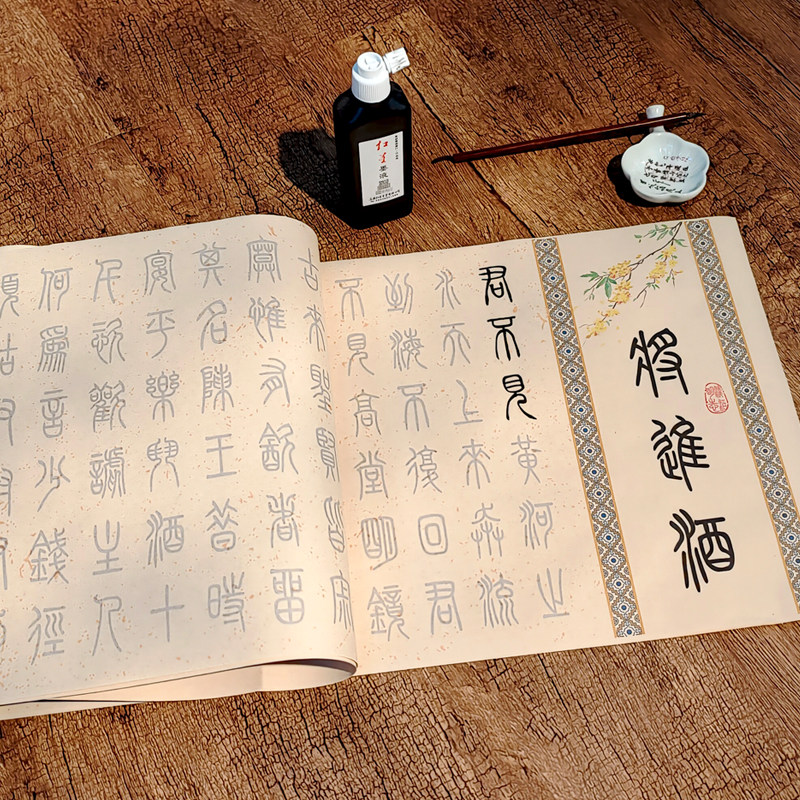 將進酒
君不見黃河之
水天上來奔流
到海不復回君
不見高堂明鏡
古來聖賢皆寂
寞惟有飲者留
其名陳王昔時
宴平樂斗酒十
千恣歡謔主人
何爲言少錢徑
須沽取
红星墨液